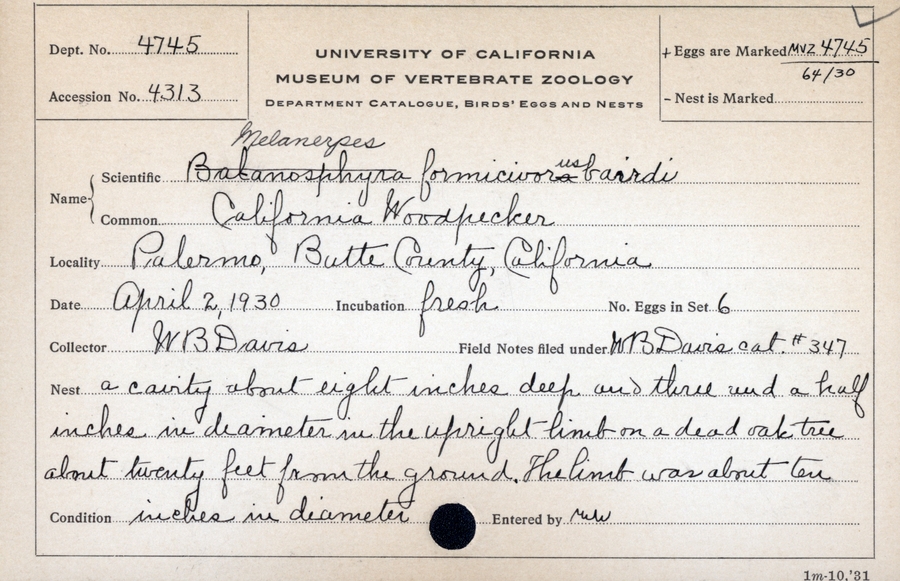 Dept. No. 4745
Accession No. 4313
UNIVERSITY OF CALIFORNIA
MUSEUM OF VERTEBRATE ZOOLOGY
DEPARTMENT CATALOGUE, BIRDS' EGGS AND NESTS
+ Eggs are Marked MVZ 4745
64/30
- Nest is Marked
Melanerpes
Name Scientific Balanosphyra formicivora us bairdi
Common California Woodpecker
Locality Palermo, Butte County, California
Date April 2, 1930 Incubation fresh No. Eggs in Set 6
Collector W B Davis Field Notes filed under W B Davis cat. # 347
Nest a cavity about eight inches deep and three and a half
inches in diameter in the upright limb on a dead oak tree
about twenty feet from the ground. The limb was about ten
Condition inches in diameter Entered by
1m-10,'31